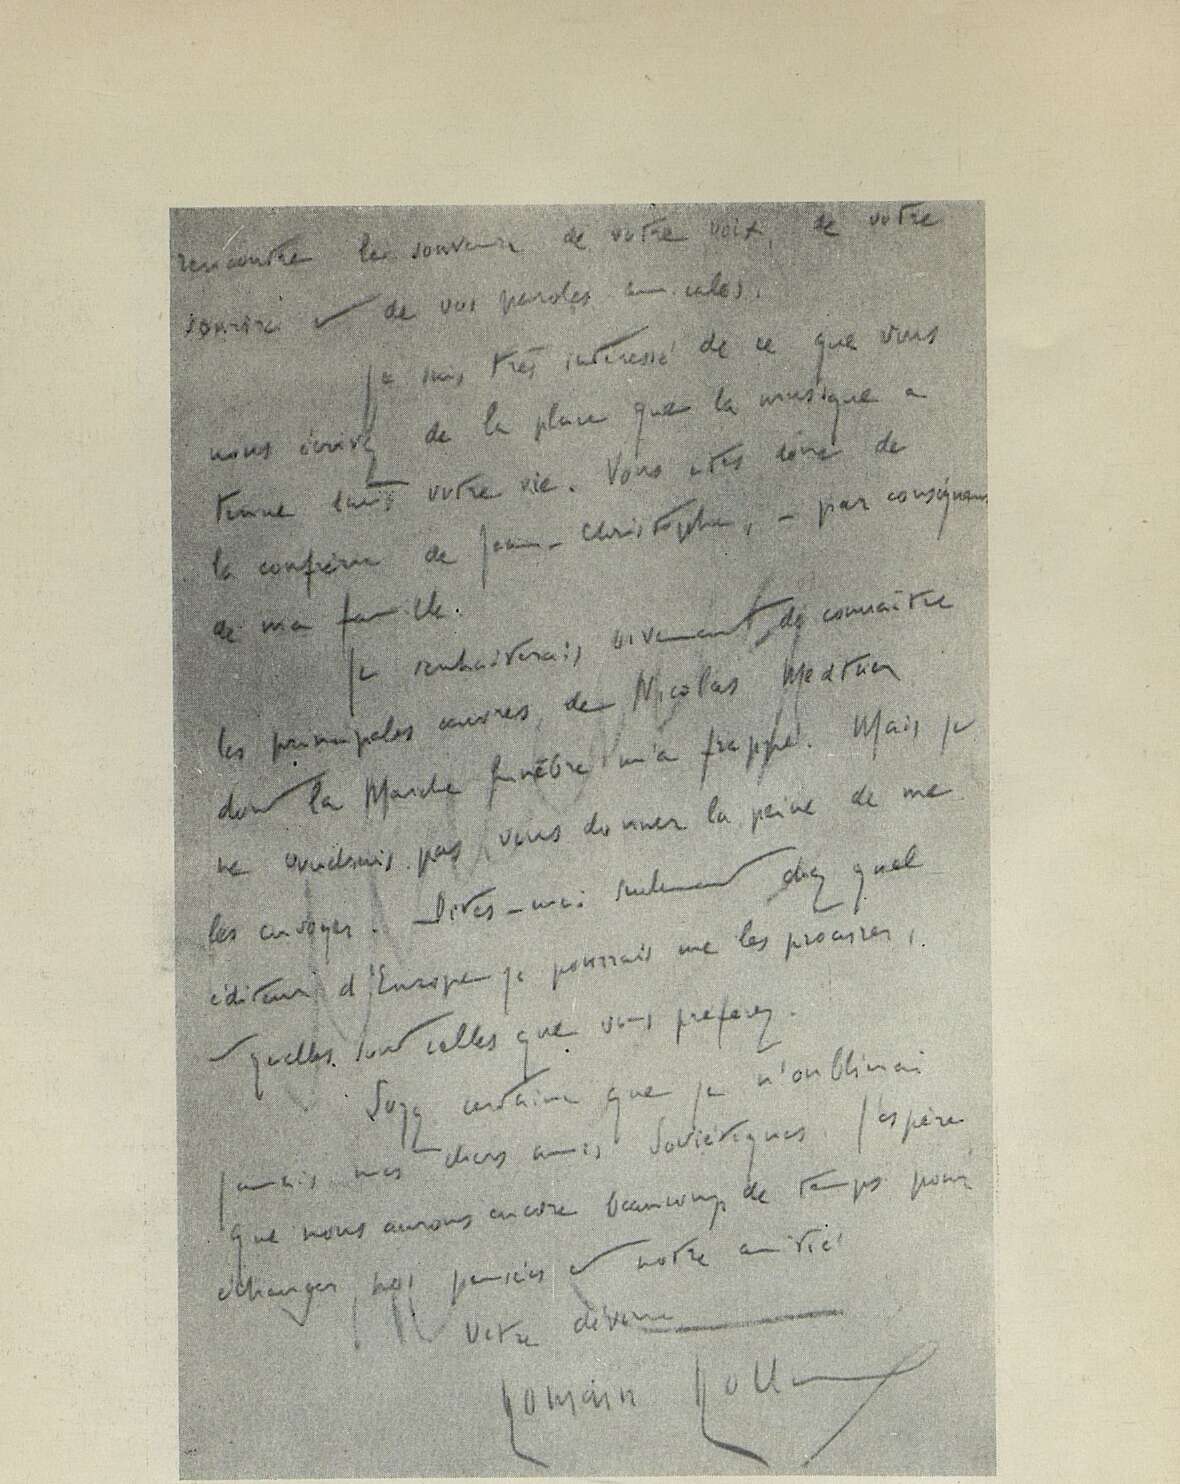 rencontre le souvenir de votre voix, de votre
sourire et de vos paroles amicales.
Je suis très intéressé de ce que vous
nous écrivez de la place que la musique a
tenue dans votre vie. Vous êtes donc de
la confrérie de Jean-Christophe, – par conséquent
de ma famille.
Je souhaiterais vivement de connaître
les principales œuvres de Nicolas Medtner
dont la Marche funèbre m'a frappé. Mais je
ne voudrais pas vous donner la peine de me
les envoyer. Dites-moi seulement chez quel
éditeur d'Europe je pourrais me les procurer,
et quelles sont celles que vous préférez.
Soyez certaine que je n'oublierai
jamais mes chers amis Soviétiques. J'espère
que nous aurons encore beaucoup de temps pour
échanger nos pensées et notre amitié
Votre dévoué
Romain Rolland